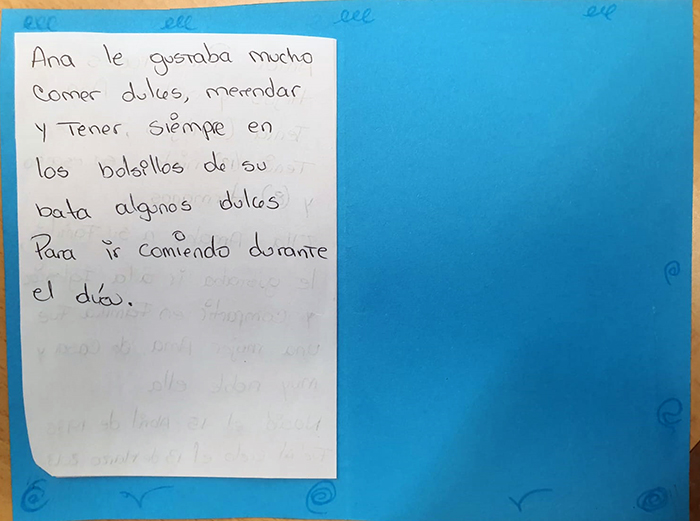 Ana le gustaba mucho
comer dulces, merendar
y tener siempre en
los bolsillos de su
bata algunos dulces
Para ir comiendo durante
el día.